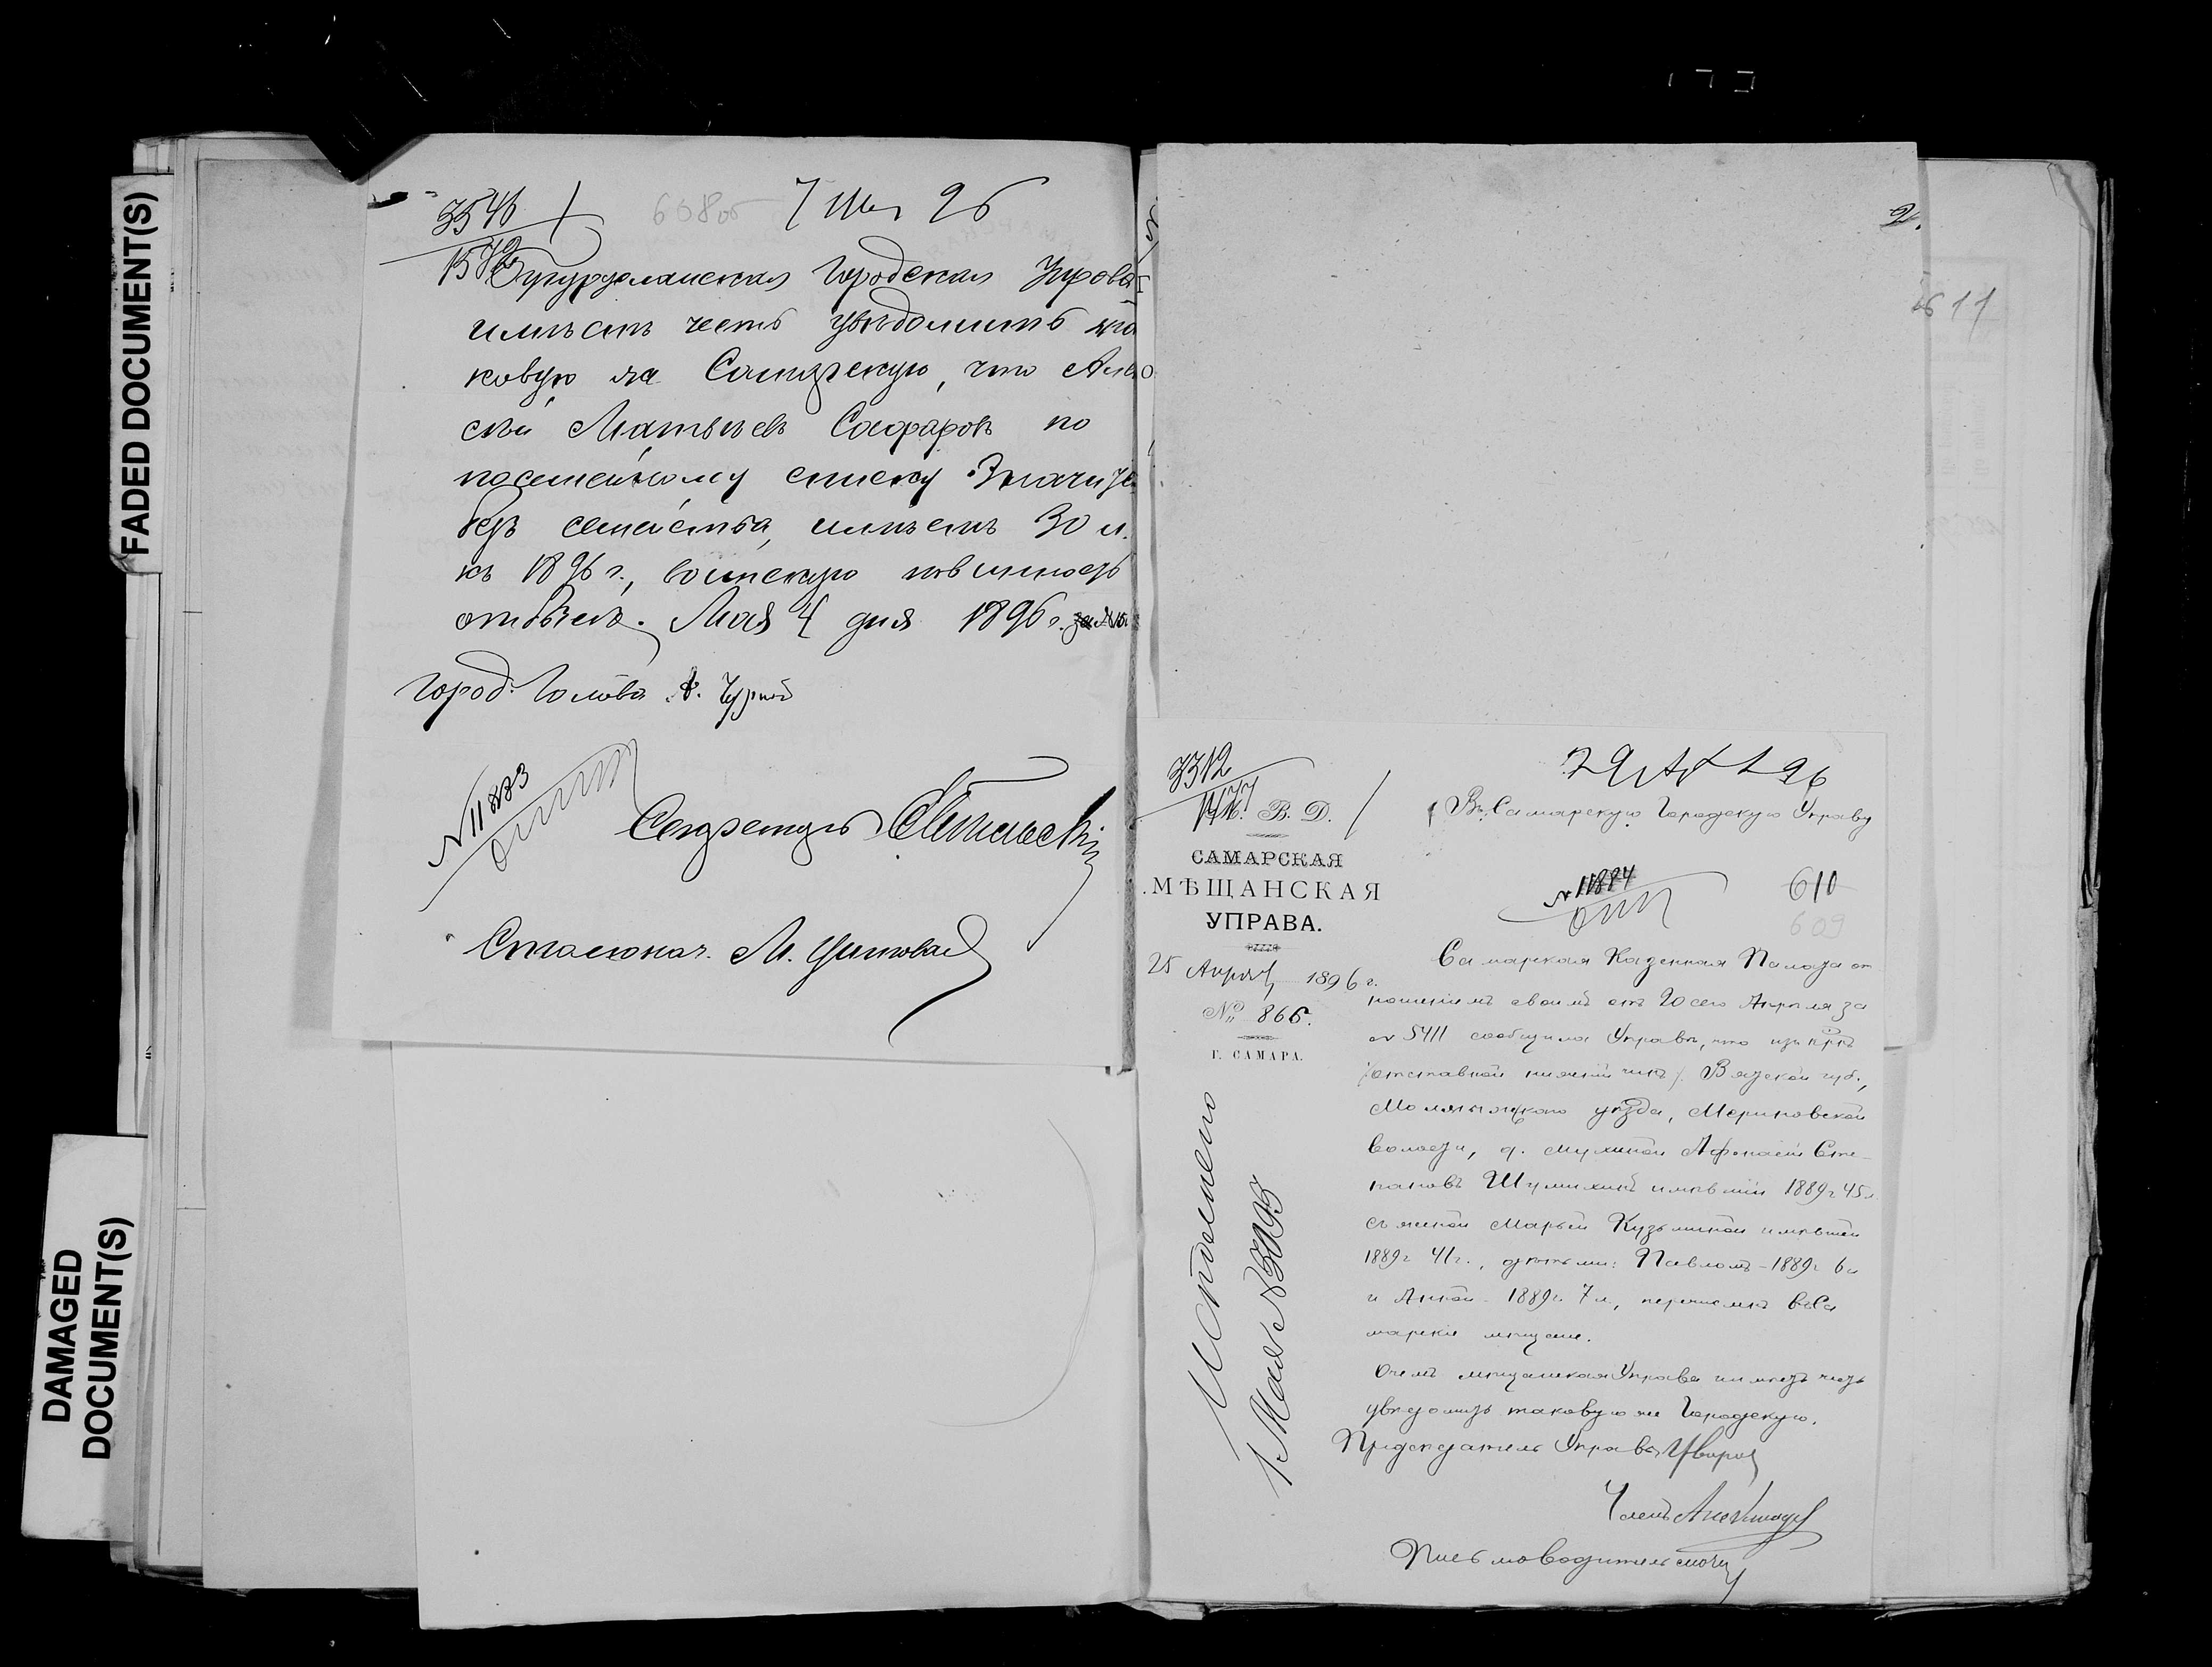 FADED DOCUMENT(S)
DAMAGED
DOCUMENT(S)
3546
7 Мая 96
Бугурусланская Городская Управа
имѣетъ честь увѣдомить та
ковую же Самарскую, что Алек
сѣй Матвѣевъ Сафаровъ по
посемейному списку значится
безъ семейства, имѣетъ 30 л.
къ 1896 г., воинскую повинность
отбылъ. Мая 4 дня 1896 г.
Город. Голова
№ 11883
Секретарь
Столонач.
2.
611
3312
29 Апр 96
М. В. Д.
Въ Самарскую Городскую Управу
САМАРСКАЯ
МѢЩАНСКАЯ
УПРАВА.
№ 11884
610
609
25 Апрѣля 1896 г.
№ 866.
Г. САМАРА.
Самарская Казенная Палата от
ношеніемъ своимъ отъ 20 сего Апрѣля за
№ 5411 сообщила Управѣ, что изъ кр-нъ
/отставной нижній чинъ/. Вятской губ.,
уѣзда, Мериновской
волости, д. Мухиной Афанасій Сте-
пановъ Шумихинъ имѣвшій 1889 г 45 л.
съ женой Марьей Кузьминой имѣвшей
1889 г 41 г., дѣтьми: Павломъ - 1889 г 6 л
и Анной - 1889 г. 7 л, перечисленъ въ Са
марскіе мѣщане.
О чемъ мѣщанская Управа имѣетъ честь
увѣдомить таковую же Городскую.
Предсѣдатель Управы
Членъ
Письмоводитель
Исполнено
1 Мая № 5095